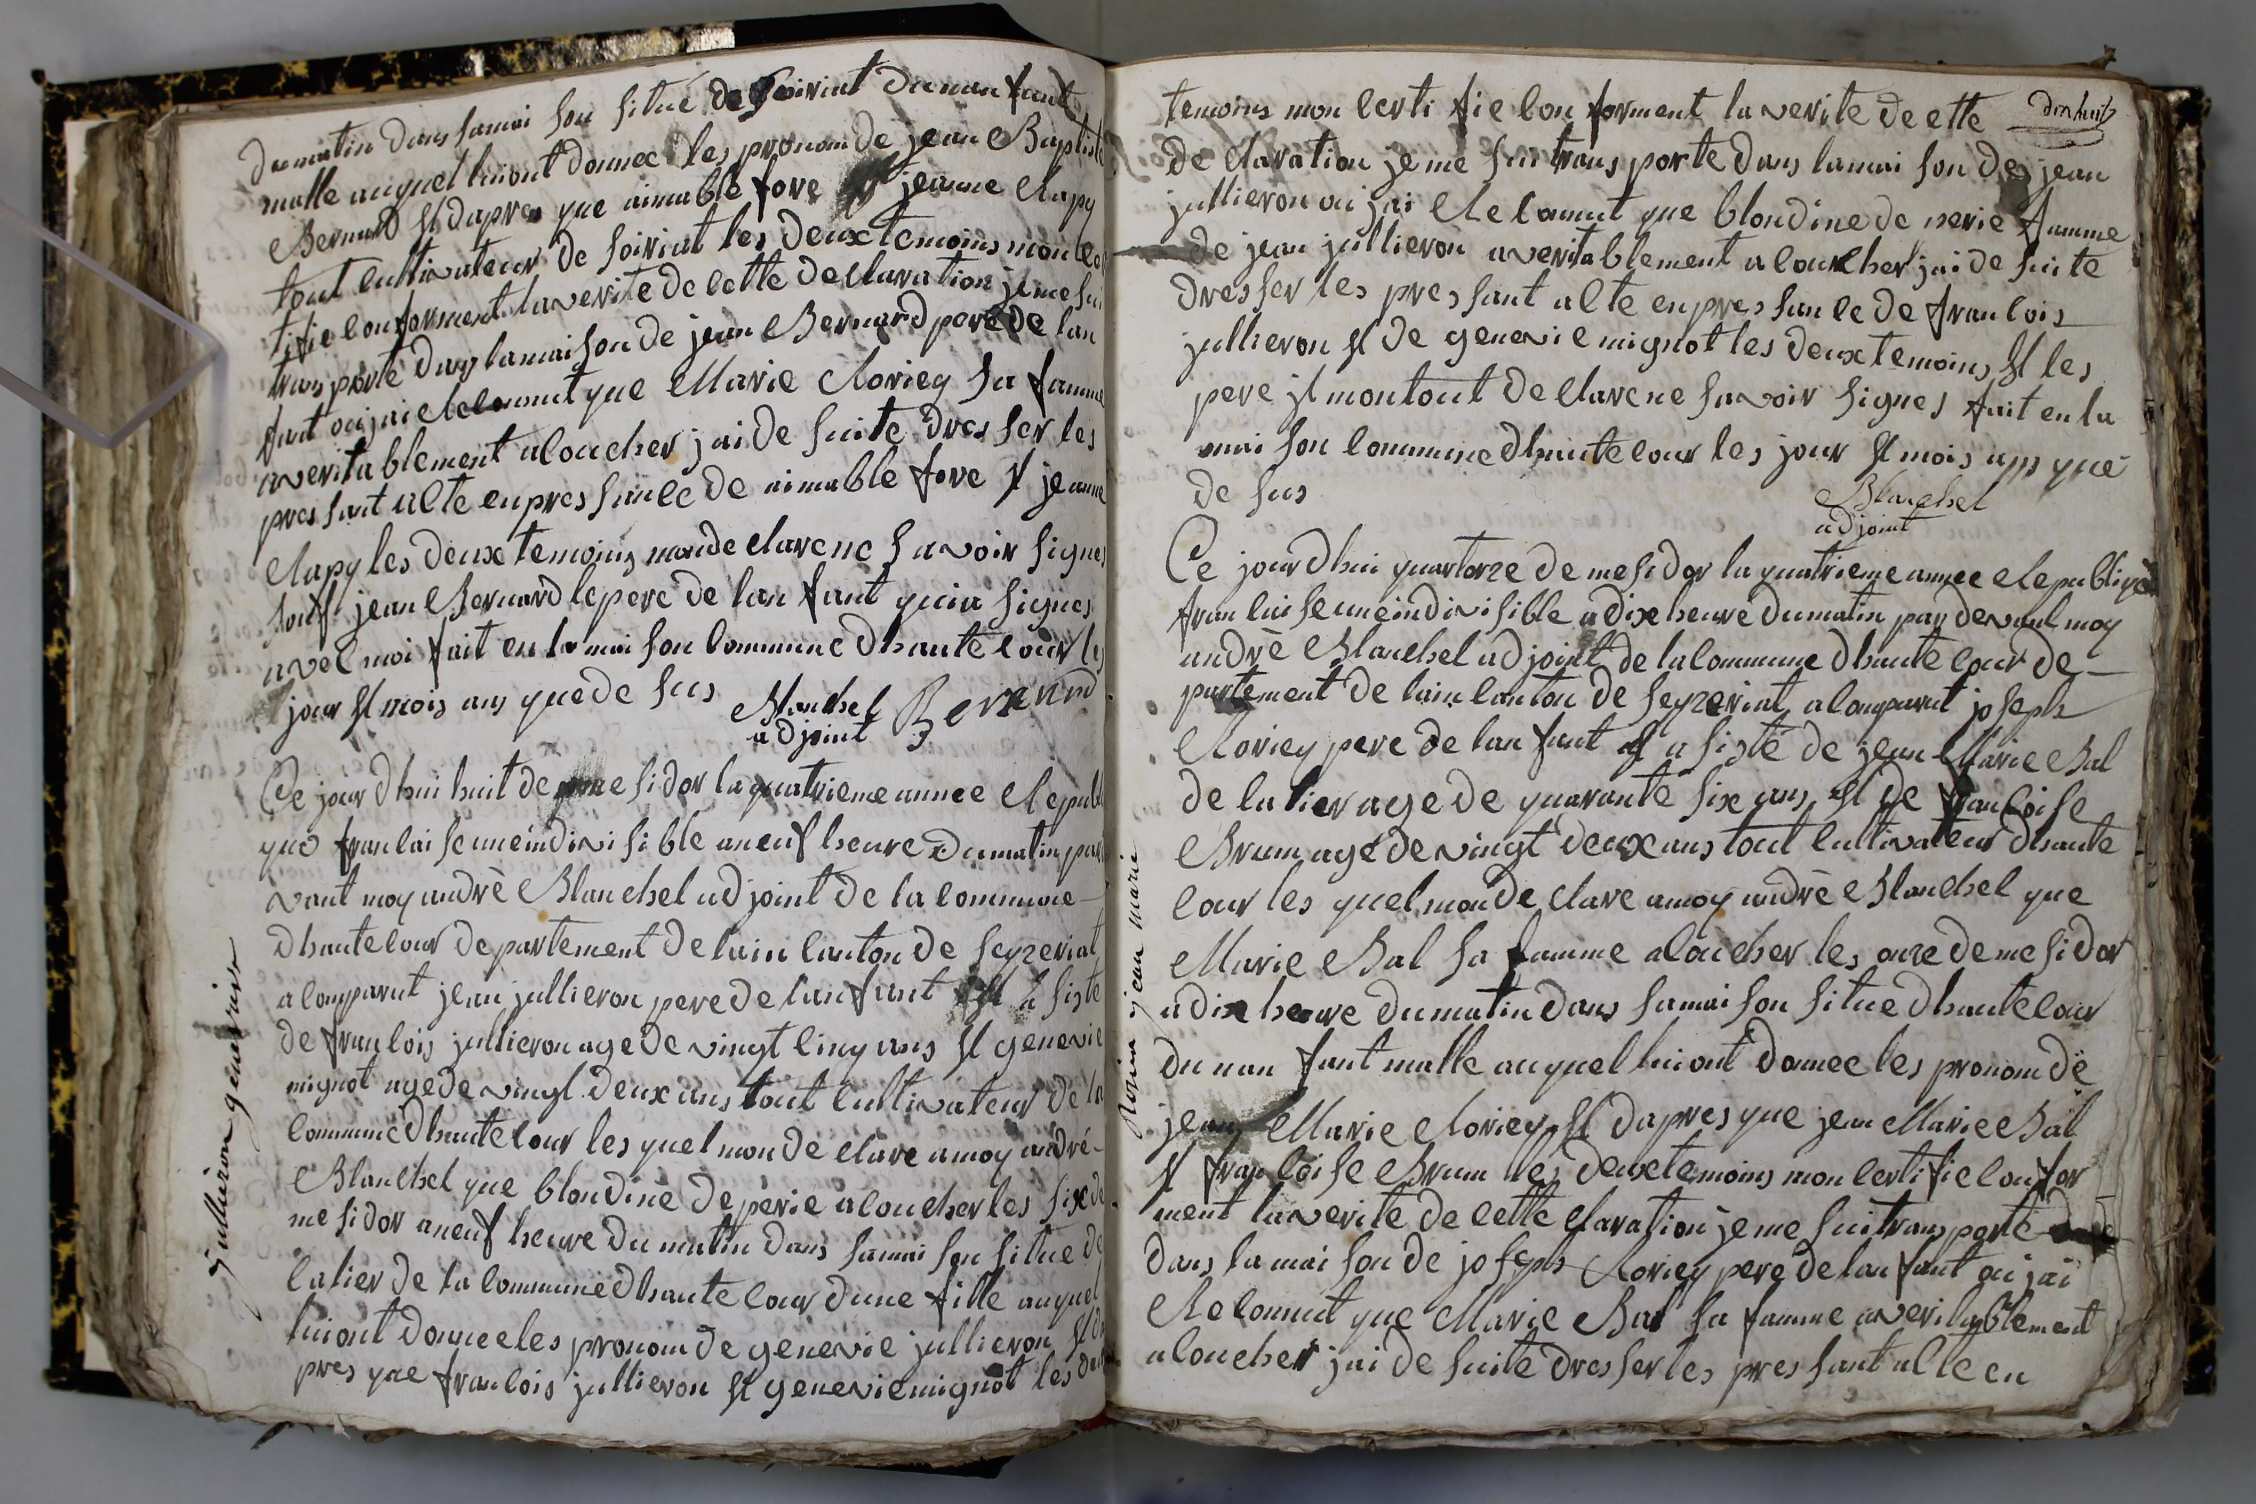 du matin dans samai son situé de Soiriat du nan fant
malle auquel luiont donnee les pronom de jean Baptiste
Bernard et dapres que aimable fore et jeanne Clapy
tout cultivateur de soiriat les deux temoins mon cer
tifie conforment la verite de cette declaration je me sui
trans porté dans lamaison de jean Bernard pere de lan
fant ou jai Reconnut que Marie Roriey sa famme
averitablement acoucher jai de suite dres ser les
pres sant acte en pres sance de aimable fore et jeanne
Clapy les deux temoins monde clarene savoir signes
sauf jean Bernard le pere de lan fant qui a signes
avec moi fait en la mai son commune dhaute cour les
jour et mois ans que de sus
Blanchel
adjoint
Bernard
Ce jour dhui huit de me sidor la quatrieme annee Republi
que francai se uneindivi sible aneuf heure du matin par
vant moy andrè Blanchel adjoint de la commune
dhautecour departement de lain canton de seyzeriat
a comparut jean jullieron pere de lanfant et a sisté
de francois jullieron age de vingt cinq ans et genevie
mignot age de vingt deux ans tout cultivateur de la
commune dhautecour les quel mon de clare amoy andré
Blanchel que blondine deperie acoucher les six de
me sidor aneuf heure du matin dans samai son situe de
Catier de la commune dhaute cour dune fille auquel
luiont donnee les pronom de genevie jullieron et da
pres que francois jullieron et genevie mignot les deux
Jullieron genevieve
dix huit
temoins mon certi fie con forment la verite de ette
de claration je me sui trans porte dans lamai son de jean
jullieron ou jai Reconnut que blondine de perie famme
de jean jullieron averitablement acourcher jai de suite
dresser les pres sant acte en pres sance de francois
jullieron et de genevie mignot les deux temoins et les
pere il montout declarene savoir signes fait en la
mai son commune dhaute cour les jour et mois ans que
de sus
Blanchel
adjoint
Ce jourdhui quartorze de me sidor la quatrieme annee Republique
fran cai se uneindivi sible a dix heure du matin par devant moy
andrè Blanchel adjoint de la commune dhaute cour de
partement de lain canton de seyzeriat a comparut joseph
Roriey pere de lan fant et a sisté de jean Marie Bal
de latier age de quarante six ans et de francoise
Brum agé de vingt deux ans tout cultivateur dhaute
cour les quel mon de clare amoy andrè Blanchel que
Marie Bal sa famme acoucher les onze de me sidor
a dix heure du matin dans samai son situe dhaute cour
du nan fant malle auquel luiont donnee les pronom de
jean Marie Roriey et dapres que jean Marie Bal
et fran coise Brum les deux temoins mon certi fie confor
ment la verite de cette claration je me suitrans porté
dans la mai son de joseph Roriey pere de lan fant ou jai
Reconnut que Marie Bal sa famme averitablement
acoucher jai de suite dres ser les pres sant acte en
Rorien jean marie